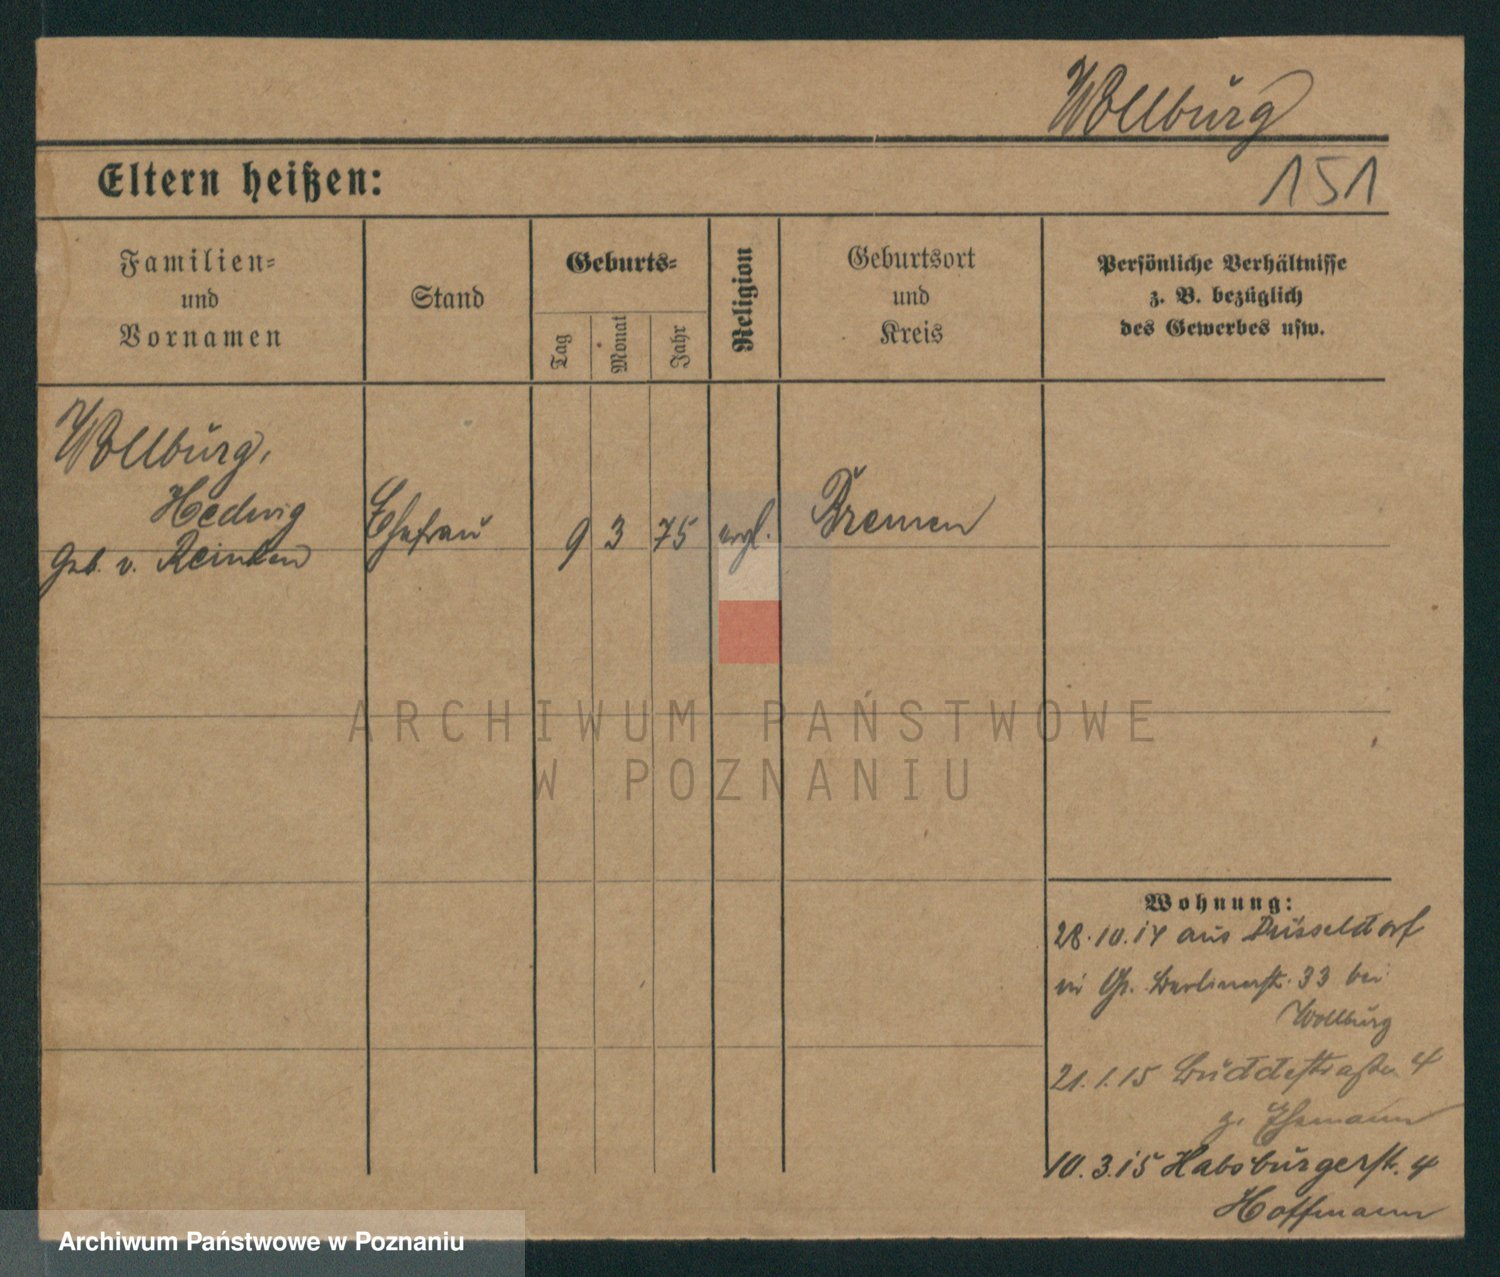 Wollburg
Eltern heißen:
151
Familien-
und
Vornamen
Stand
Geburts-
Tag
Monat
Jahr
Religion
Geburtsort
und
Kreis
Persönliche Verhältnisse
z. B. bezüglich
des Gewerbes usw.
Wollburg,
Hedwig
geb. v. Reinken
Ehefrau
9
3
75
evgl.
Bremen
ARCHIWUM PAŃSTWOWE
W POZNANIU
Wohnung:
28.10.14 aus Düsseldorf
in Gr. Berlinerstr. 33 bei
Wollburg
21.1.15 Buddestraße 4
z. Ehemann
10.3.15 Habsburgerstr. 4
Hoffmann
Archiwum Państwowe w Poznaniu